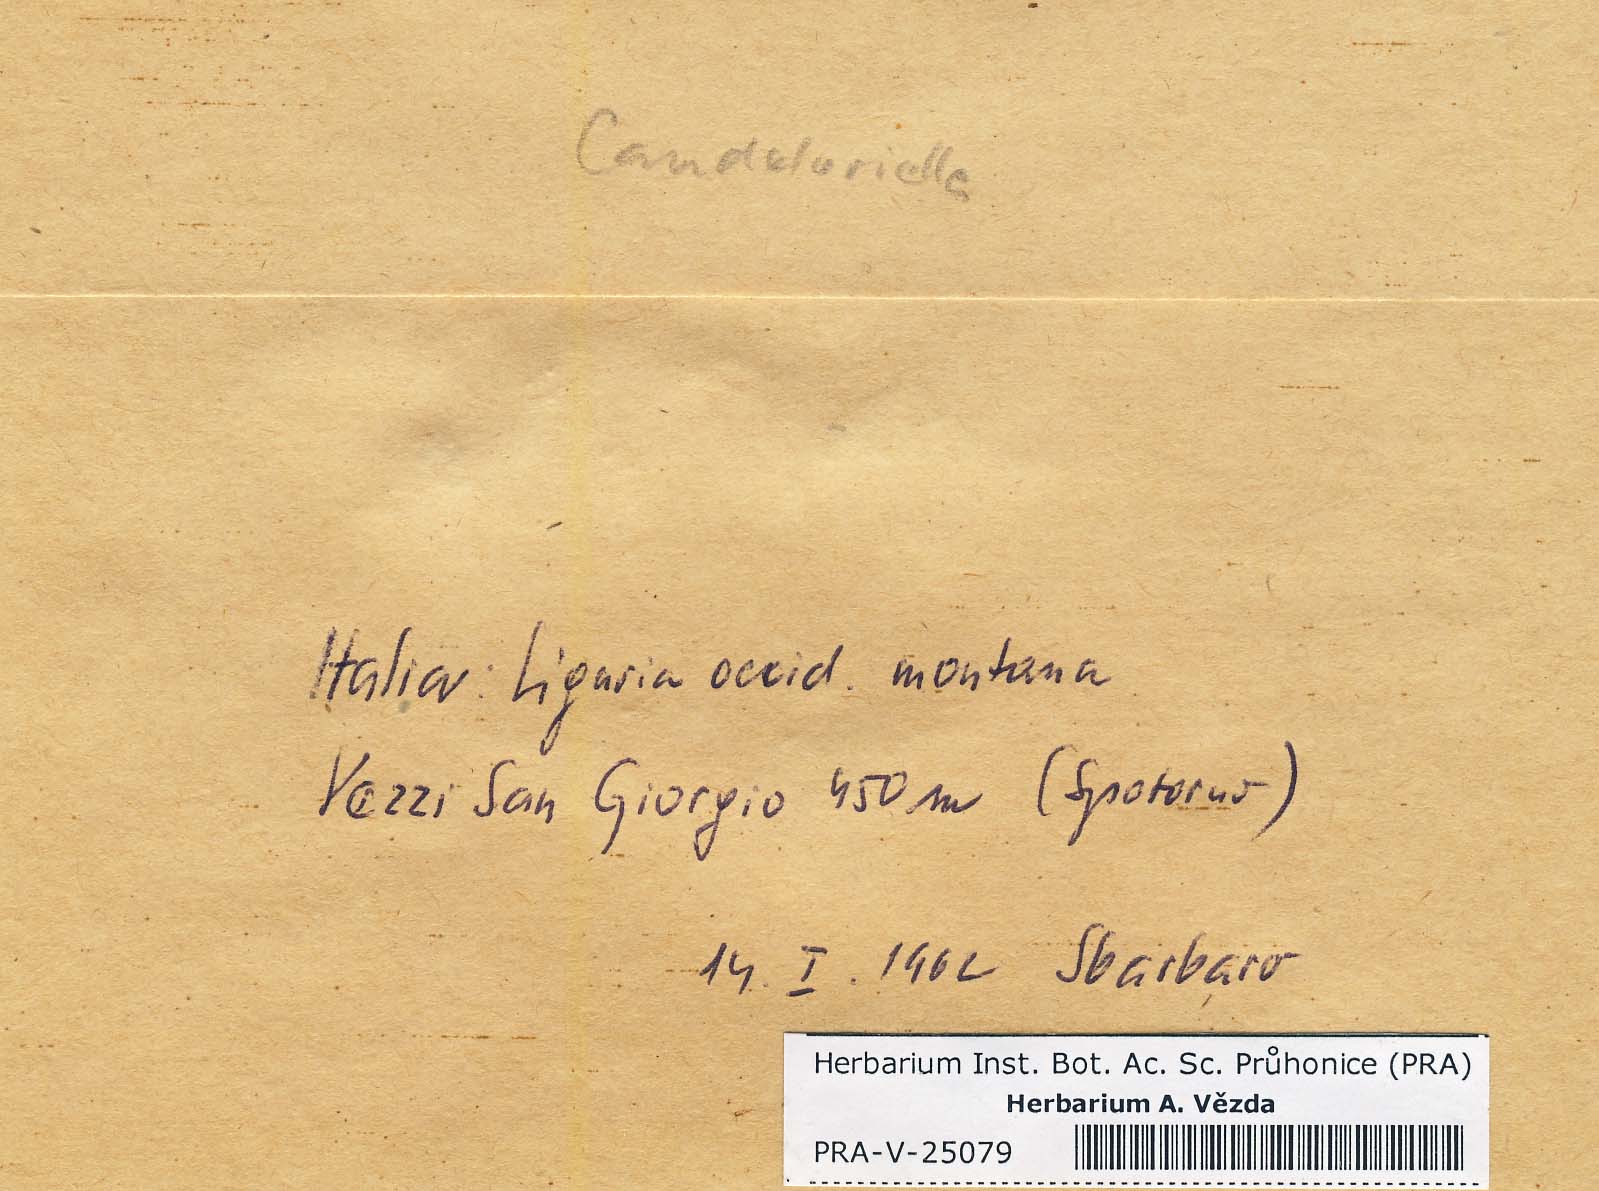 Candelariella
Italia: Liguria occid. montana
Vezzi San Giorgio 450 m (Spotorno)
14. I. 1962 Sbarbaro
Herbarium Inst. Bot. Ac. Sc. Průhonice (PRA)
Herbarium A. Vězda
PRA-V-25079